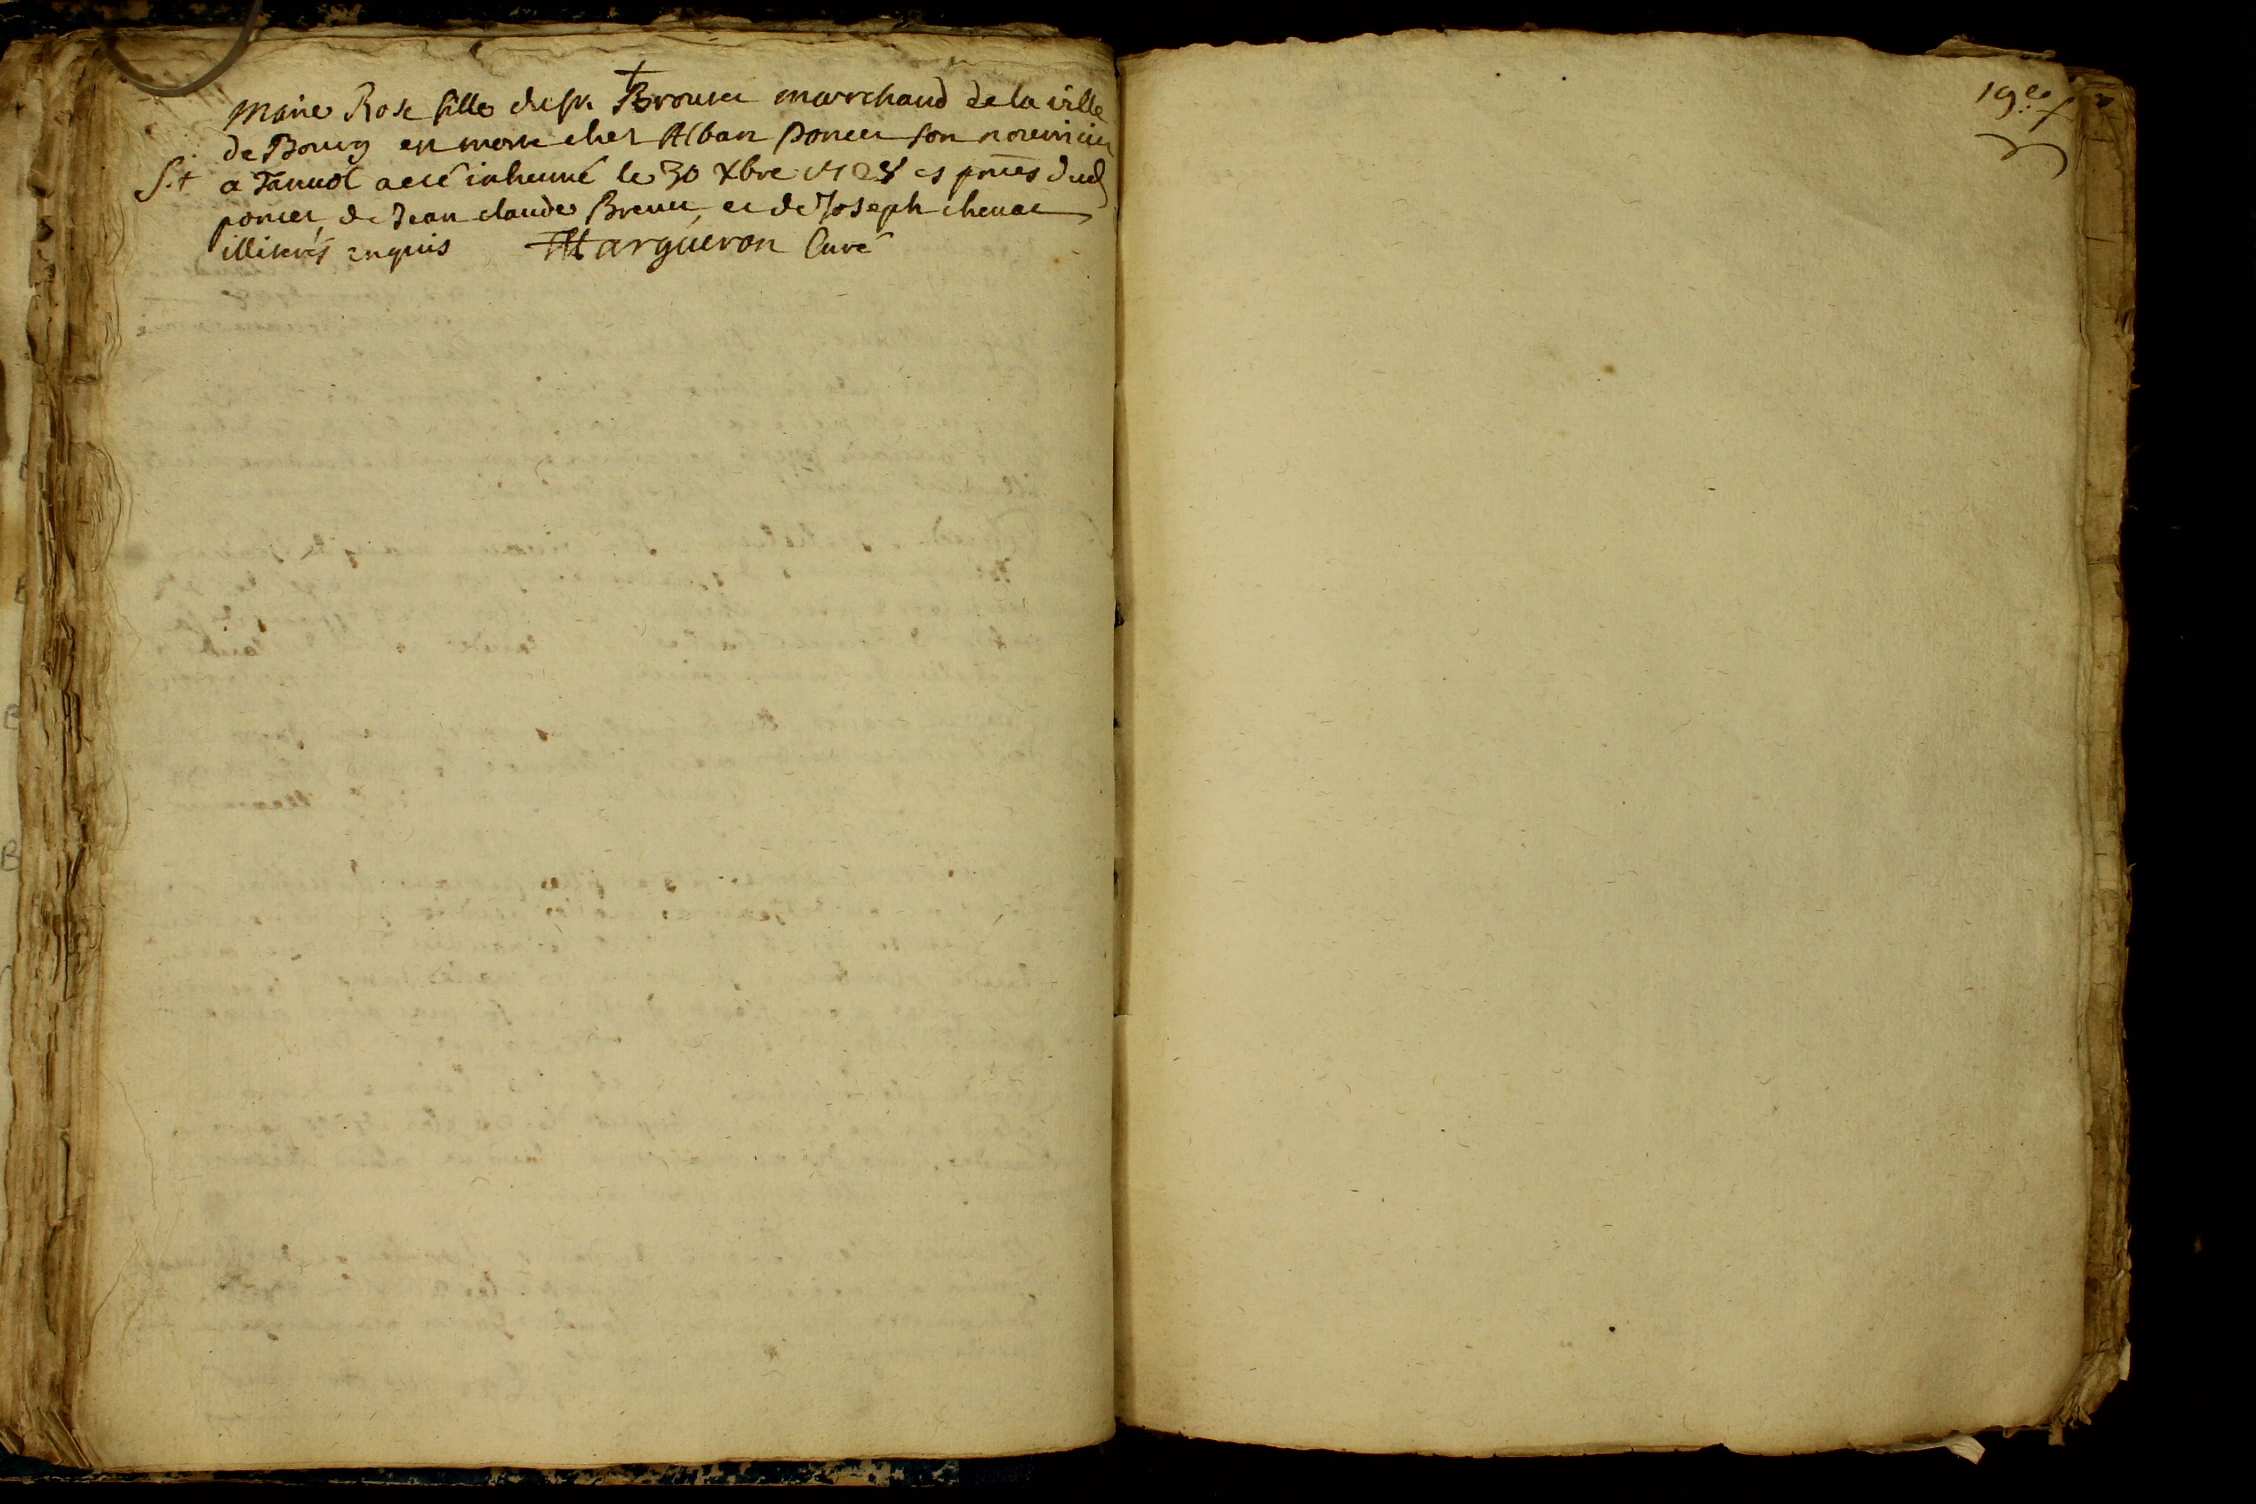 †
Marie Rose fille du sr Brouier marchand de la ville
de Bourg est morte chez Alban poncet son nouricier
S. + a Januol a eté inhumé le 30 Xbre 1728 es pntes dud
poncet, de Jean claude Brenet, et de Joseph chenat
illiterés enquis Margueron Curé
19e